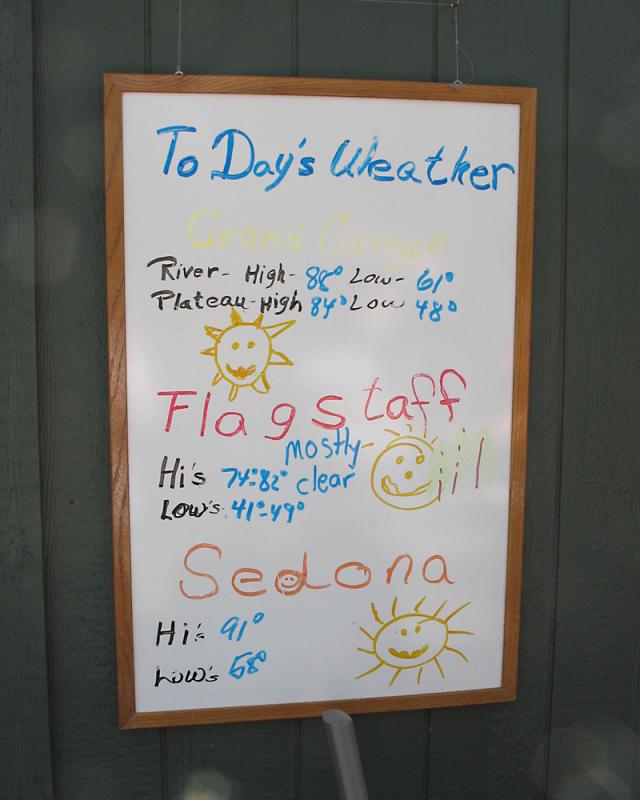 To Day's Weather
Grand Canyon
River - High - 88° Low - 61°
Plateau - High 84° Low 48°
Flagstaff
mostly clear
Hi's 74°-82°
Low's 41°-49°
Sedona
Hi's 91°
Low's 58°